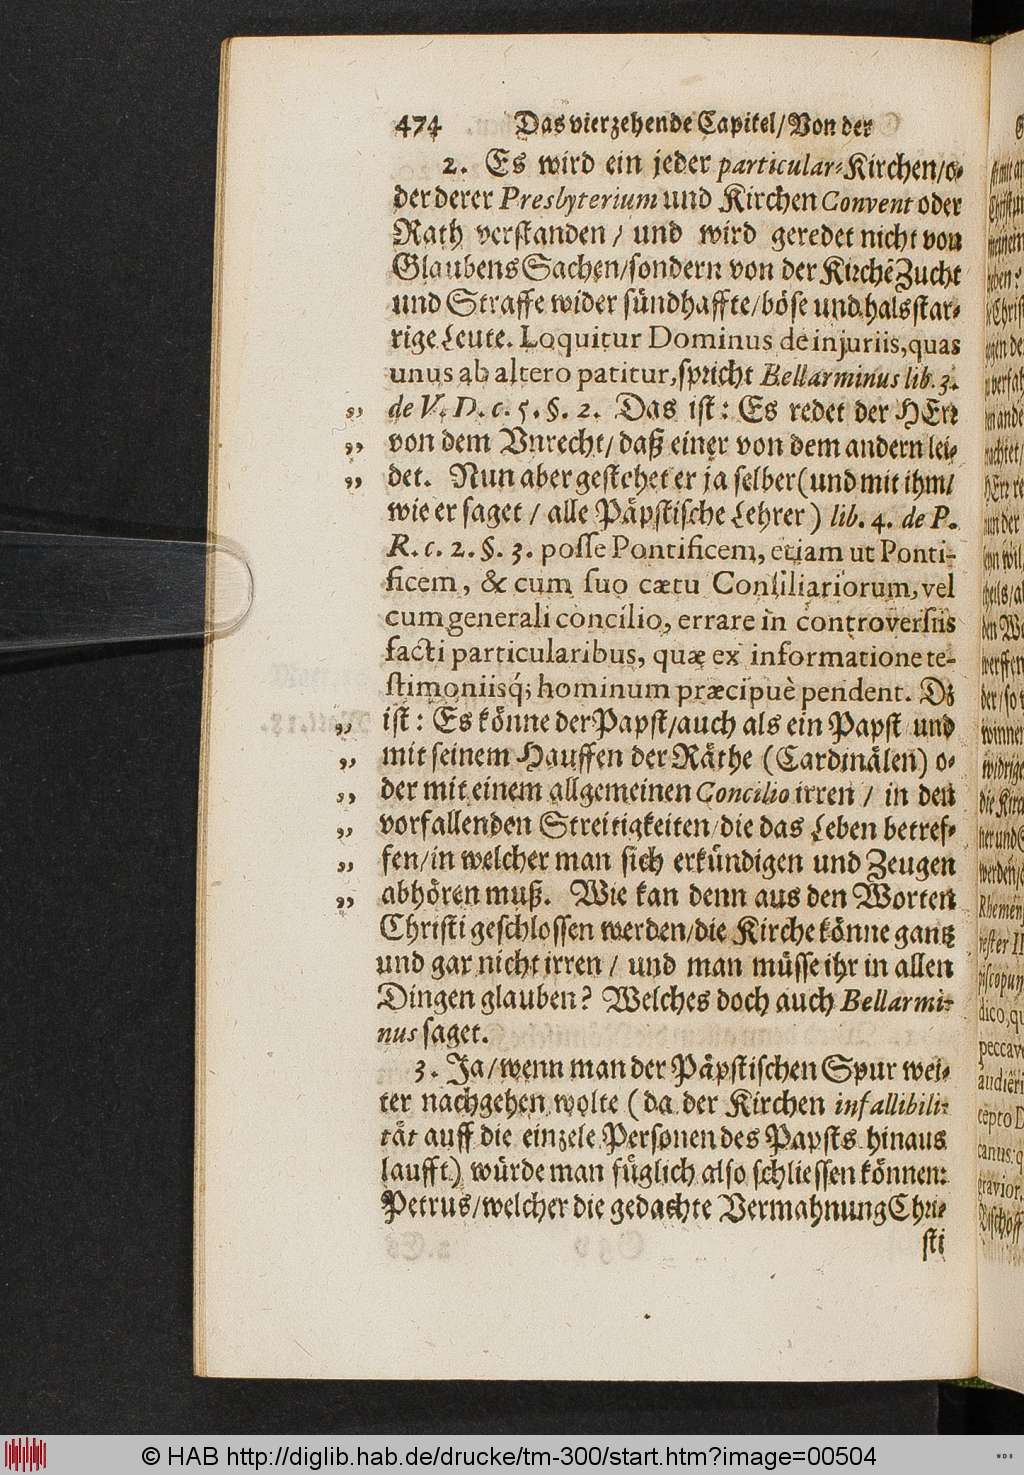 474 Das vierzehende Capitel/Von der
2. Es wird ein jeder particular-Kirchen/o-
der derer Presbyterium und Kirchen Convent oder
Rath verstanden / und wird geredet nicht von
Glaubens Sachen/sondern von der Kirchẽ Zucht
und Straffe wider sündhaffte/böse und halsstar-
rige Leute. Loquitur Dominus de injuriis, quas
unus ab altero patitur, spricht Bellarminus lib. 3.
„ de V. D. c. 5. §. 2. Das ist: Es redet der HErr
„ von dem Unrecht/ daß einer von dem andern lei-
„ det. Nun aber gestehet er ja selber (und mit ihm/
wie er saget / alle Päpstische Lehrer) lib. 4. de P.
R. c. 2. §. 3. posse Pontificem, etiam ut Ponti-
ficem, & cum suo cætu Consiliariorum, vel
cum generali concilio, errare in controversiis
facti particularibus, quæ ex informatione te-
stimoniisq́; hominum præcipuè pendent. Dz
„ ist: Es könne der Papst/auch als ein Papst und
„ mit seinem Hauffen der Räthe (Cardinälen) o-
„ der mit einem allgemeinen Concilio irren / in den
„ vorfallenden Streitigkeiten/die das Leben betref-
„ fen/in welcher man sich erkündigen und Zeugen
„ abhören muß. Wie kan denn aus den Worten
Christi geschlossen werden/die Kirche könne gantz
und gar nicht irren / und man müsse ihr in allen
Dingen glauben? Welches doch auch Bellarmi-
nus saget.
3. Ja/wenn man der Päpstischen Spur wei-
ter nachgehen wolte (da der Kirchen infallibili-
tät auff die einzele Personen des Papsts hinaus
laufft) würde man füglich also schliessen können:
Petrus/welcher die gedachte Vermahnung Chri-
sti
© HAB http://diglib.hab.de/drucke/tm-300/start.htm?image=00504